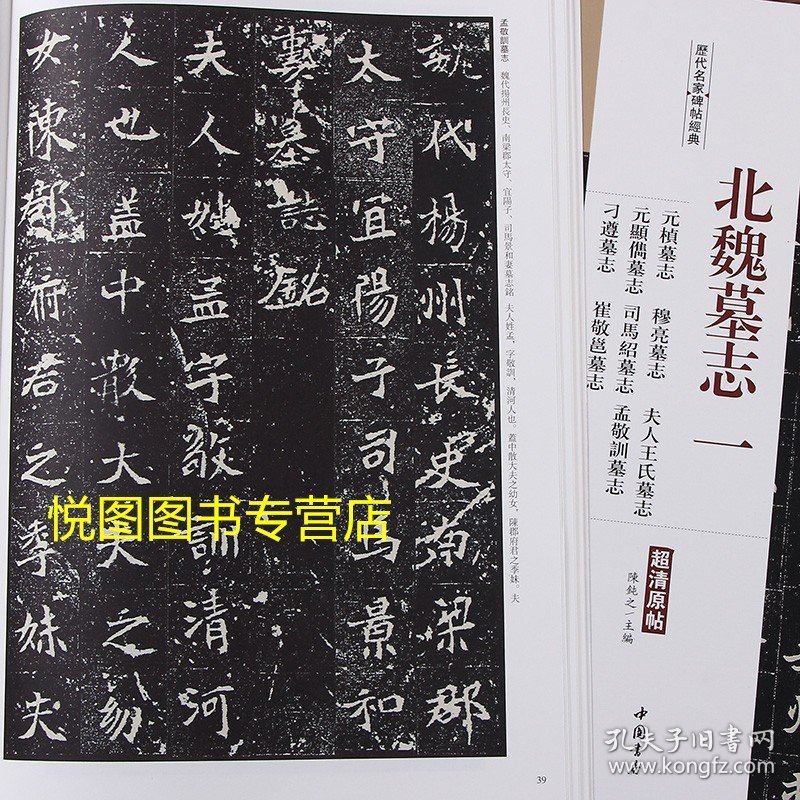 魏代楊州長史南梁郡
太守宜陽子司馬景和
妻墓誌銘
夫人姓孟字敬訓清河
人也盖中散大夫之幼
女陳郡府君之季妹夫
孟敬訓墓志 魏代揚州長史、南梁郡太守、宜陽子、司馬景和妻墓志銘 夫人姓孟，字敬訓，清河人也。蓋中散大夫之幼女，陳郡府君之季妹。夫
39
悦图图书专营店
歷代名家碑帖經典
北魏墓志 一
元楨墓志 穆亮墓志 夫人王氏墓志
元顯儁墓志 司馬紹墓志 孟敬訓墓志
刁遵墓志 崔敬邕墓志
超清原帖
陳鈍之/主編
中國書店
孔夫子旧书网
www.kongfz.com